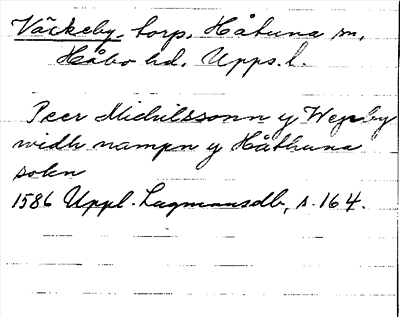 Väckeby, torp, Håtuna sn,
Håbo hd. Upps. l.
Peer Michilssonn y Wegeby
widh nampn y Håthuna
sokn
1586 Uppl. Lagmansdb, s. 164.